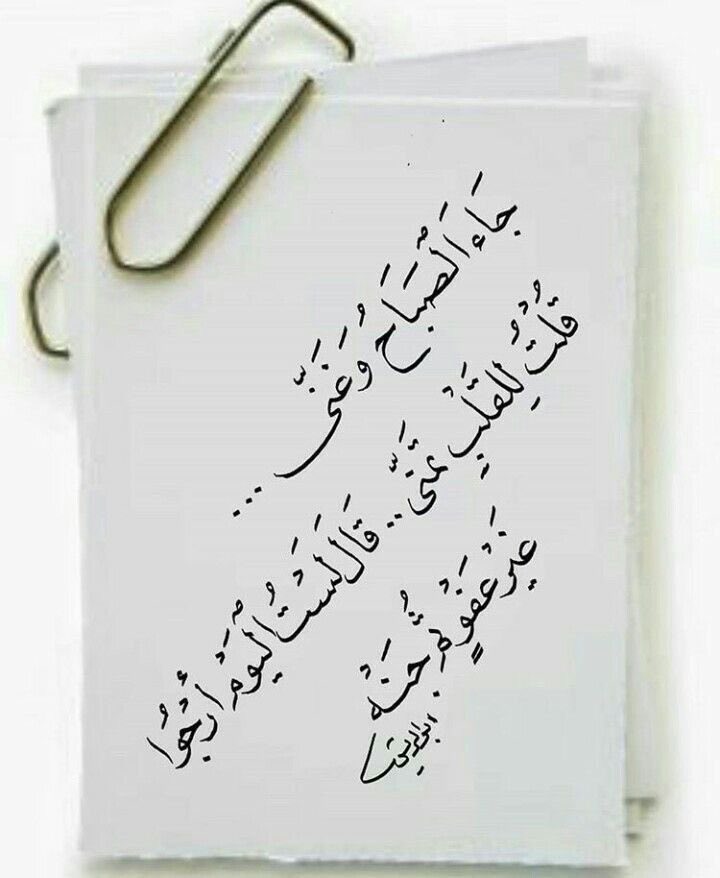 جَاءَ ٱلصَّبَاح وَغَنَّى ...
قُلْتُ لِلقَلْبِ تَمَنَّى .. قَالَ لَسْتُ ٱليَوْمَ أَرْجُوا
غَيْرَ عَفْوٍ ثُمَّ جَنَّهْ